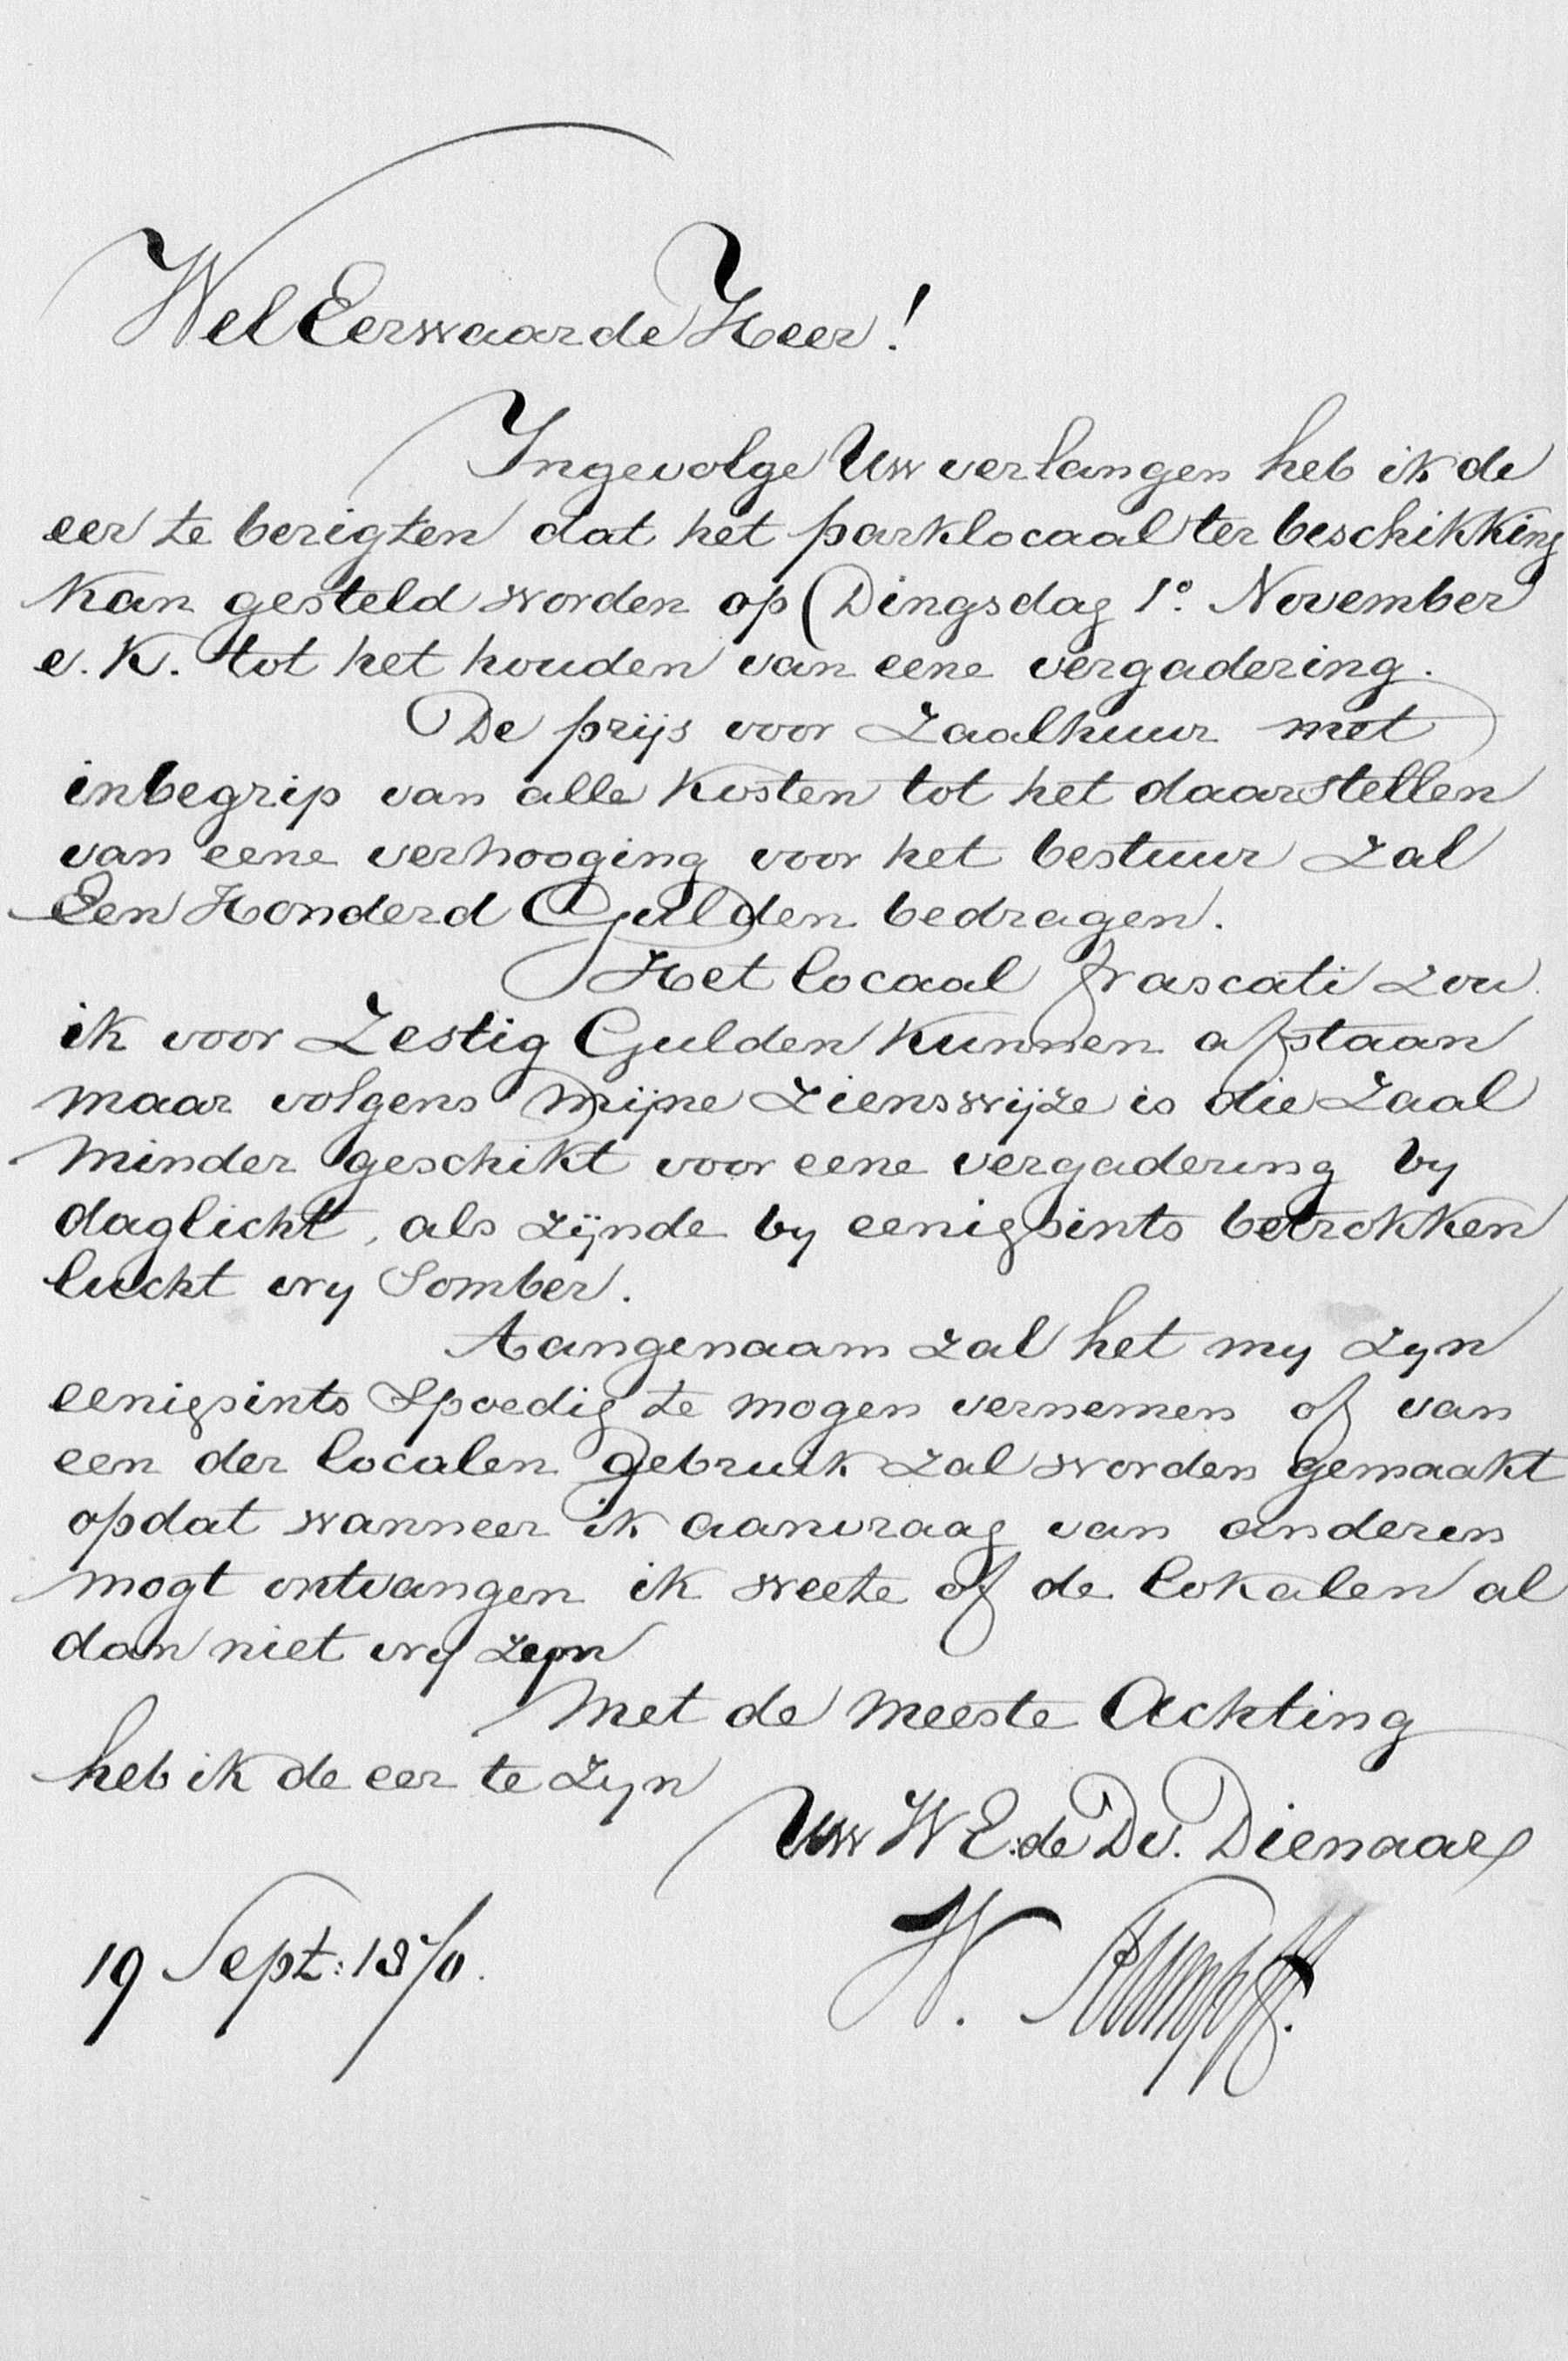 WelEerwaarde Heer!
Ingevolge Uw verlangen heb ik de
eer te berigten dat het parklocaal ter beschikking
kan gesteld worden op Dingsdag 1o. November
e.k. tot het houden van eene vergadering.
De prijs voor Zaalhuur met
inbegrip van alle kosten tot het daarstellen
van eene verhooging voor het bestuur zal
Een Honderd Gulden bedragen.
Het locaal frascati zou
ik voor Zestig Gulden kunnen afstaan
maar volgens mijne Zienswijze is die Zaal
minder geschikt voor eene vergadering by
daglicht, als zijnde by eenigsints betrokken
lucht vry Somber.
Aangenaam zal het my zyn
eenigsints Spoedig te mogen vernemen of van
een der localen gebruik zal worden gemaakt
opdat wanneer ik aanvraag van anderen
mogt ontvangen ik weete of de lokalen al
dan niet vry zyn
Met de meeste Achting
heb ik de eer te zyn
Uw W E.de Dv. Dienaar
19 Sept: 1870.
W. Stumpff.